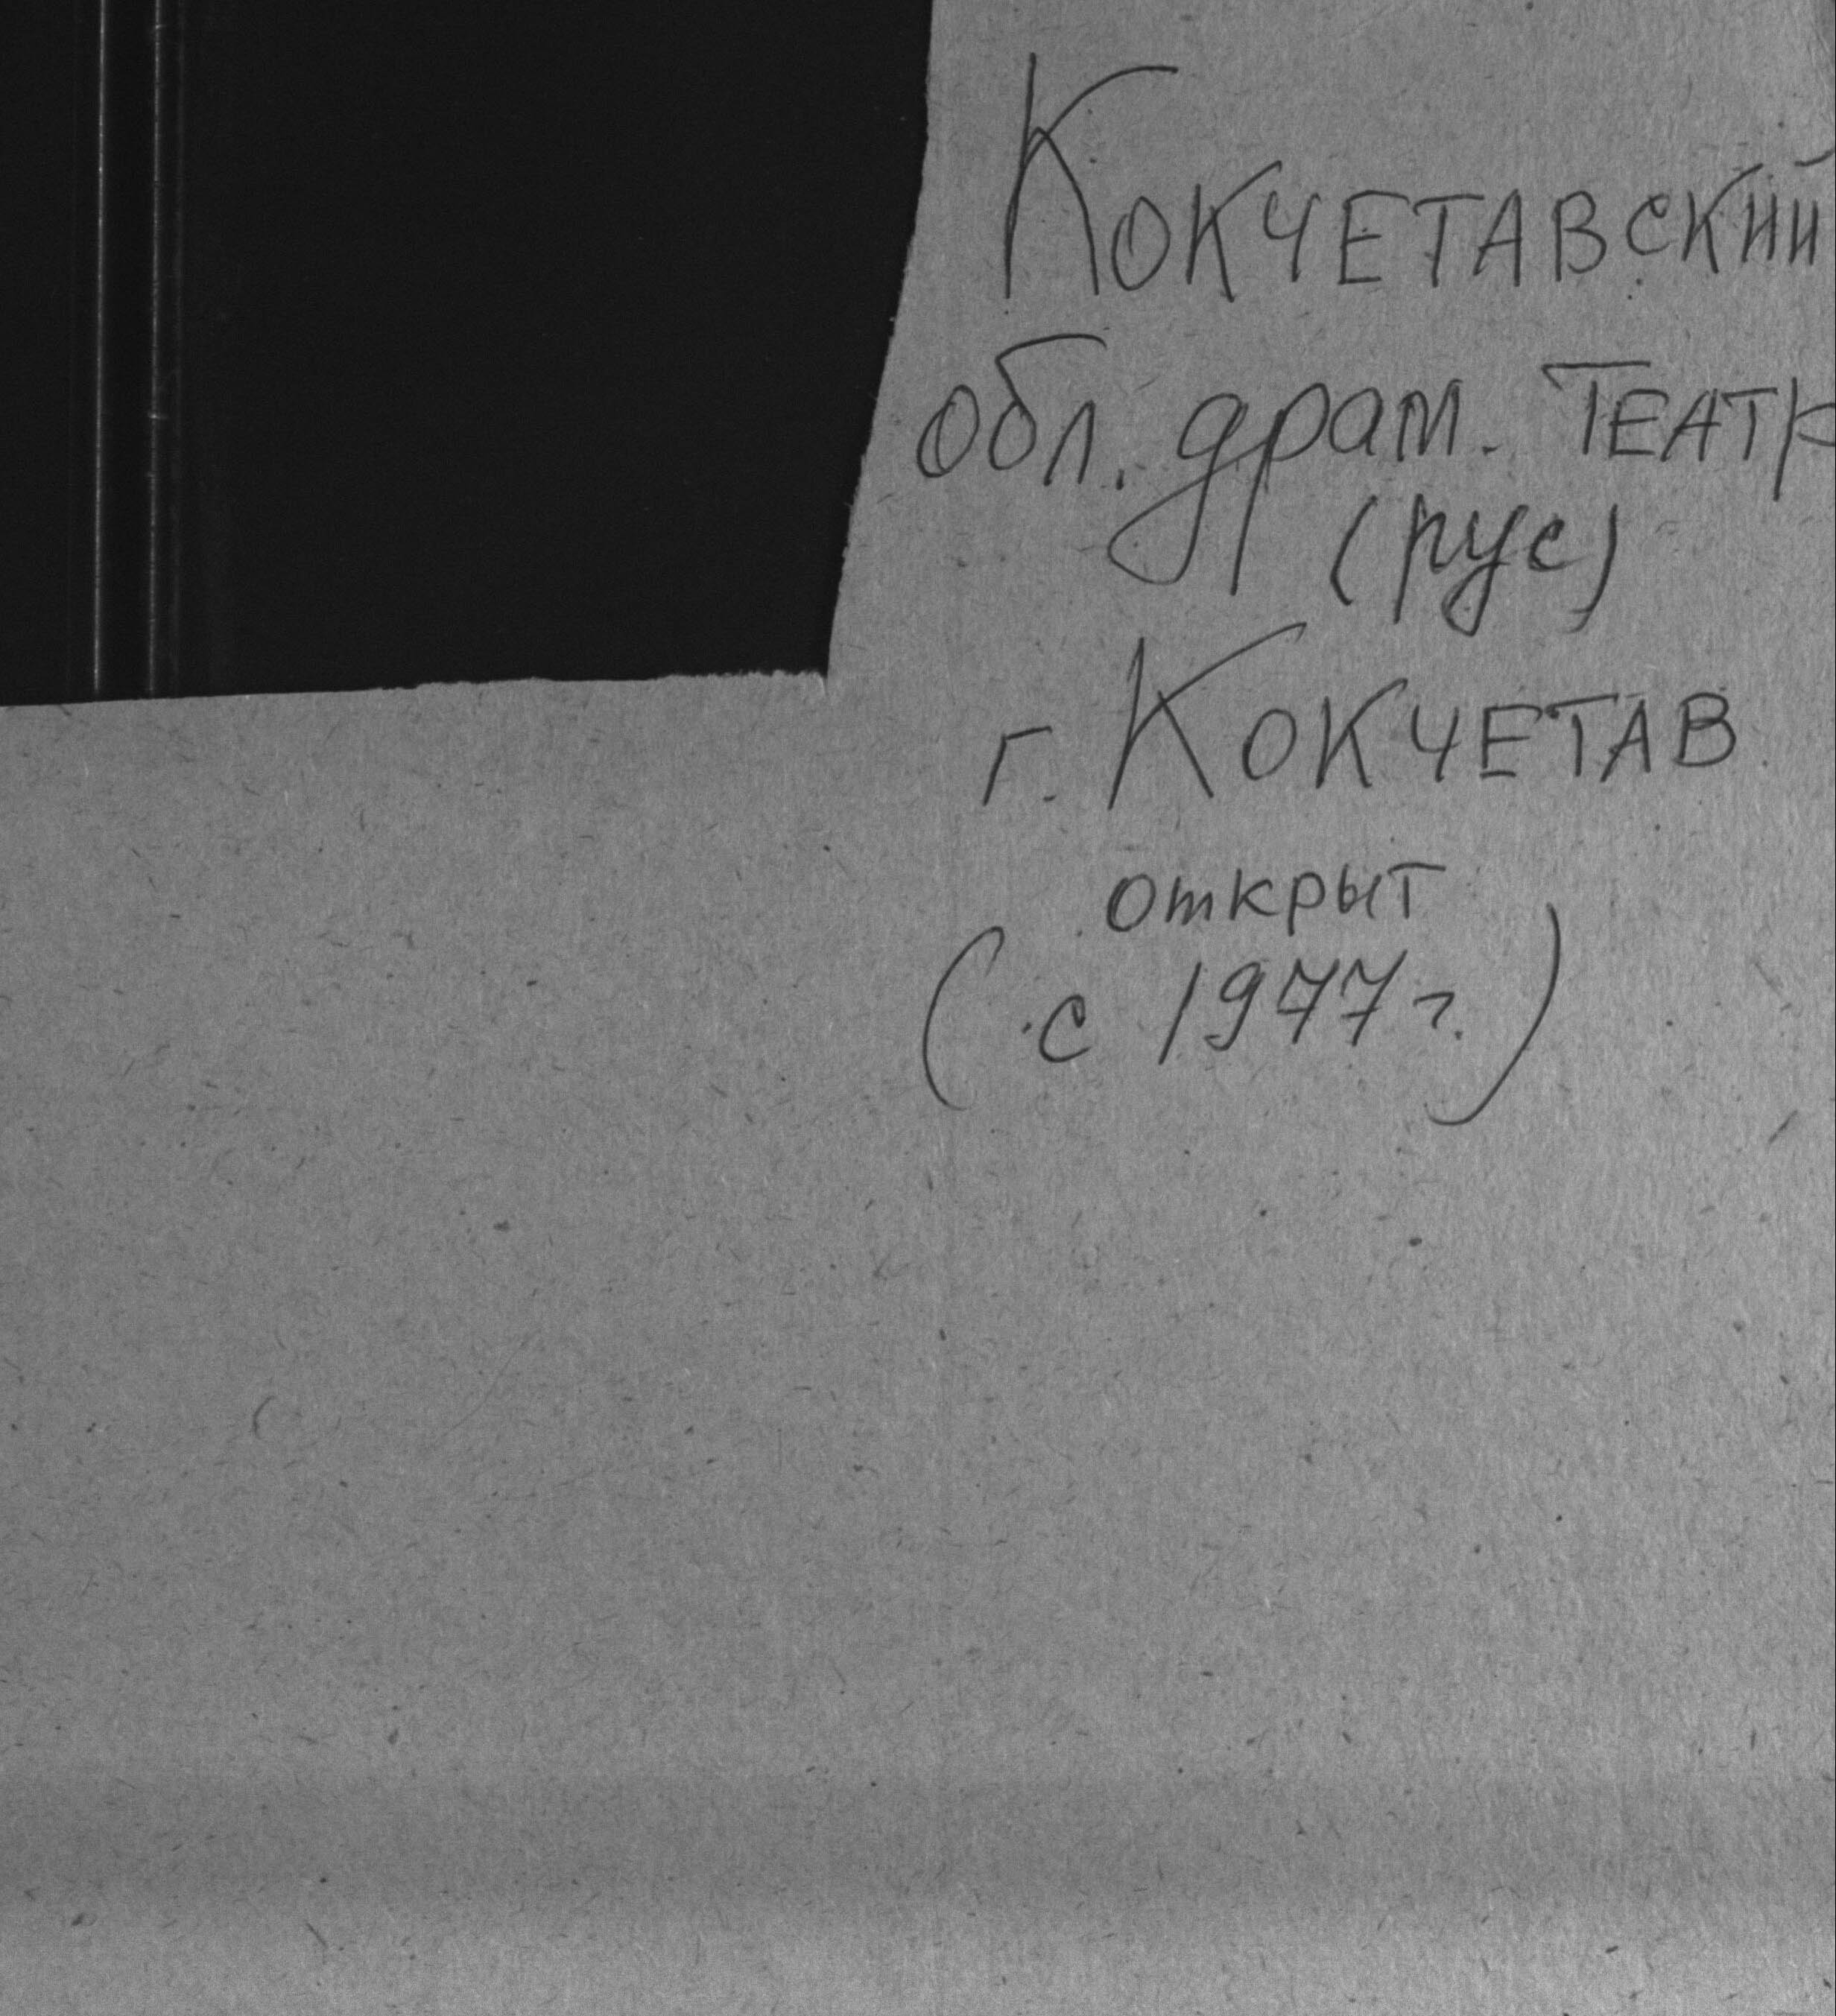 Кокчетавский
обл. драм. театр
(рус)
г. Кокчетав
открыт
(с 1977 г.)